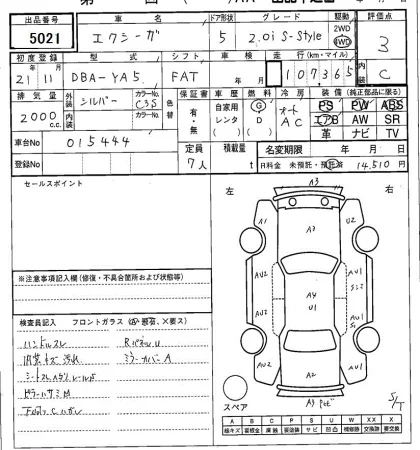 出品番号 車名 ドア形状 グレード 駆動 評価点
5021 エクシーガ 5 2.0i S-style 2WD 4WD 3
初度登録 型式 シフト 車検 走行(km・マイル) 内装
21年11月 DBA-YA5 FAT 年 月 107365 C
排気量 外装 シルバー カラーNo. C3S 色替 保証書 車歴 燃料 冷房 装備(純正部品に限る)
2000 c.c. 内装 カラーNo. 有・無 自家用 レンタ G D オート AC PS PW ABS
エアB AW SR
革 ナビ TV
車台No 015444 定員 積載量 名変期限 年 月 日
登録No 7人 t R料金 未預託・預託済 14,510円
セールスポイント 左 右
A3
A1 A3 U2
AU2 AU1
A4
U1
AU3 AU1
AU2 A2 AU1
※注意事項記入欄(修復・不具合箇所および状態等)
検査員記入 フロントガラス
ハンドルスレ RパネルU
内装キズ汚れ ミラーカバーA
スペア A3
S/T
A B C P S U W XX X
線キズ 要板金 腐蝕 要塗装 サビ 凹凸 補修跡 交換跡 要交換